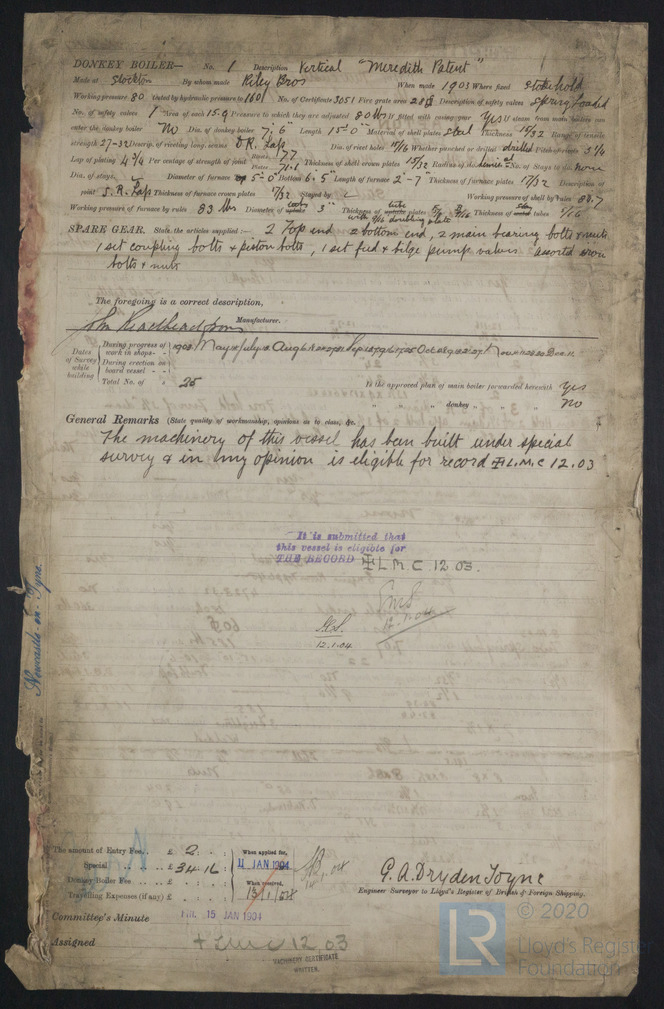 DONKEY BOILER— No. 1 Description Vertical "Meredith Patent"
Made at Stockton By whom made Riley Bros When made 1903 Where fixed Stokehold
Working pressure 80 tested by hydraulic pressure to 160 No. of Certificate 3051 Fire grate area 28 Description of safety valves Spring loaded
No. of safety valves 1 Area of each 15.9 Pressure to which they are adjusted 80 lbs If fitted with easing gear Yes If steam from main boilers can
enter the donkey boiler No Dia. of donkey boiler 7'.6" Length 15'.0" Material of shell plates Steel Thickness 15/32 Range of tensile
strength 27-32 Descrip. of riveting long. seams D.R. Lap Dia. of rivet holes Whether punched or drilled drilled Pitch of rivets
Lap of plating 4 3/4 Per centage of strength of joint Rivets 77 Plates Thickness of shell crown plates 15/32 Radius of do. No. of Stays to do. None
Dia. of stays Diameter of furnace Top 5'-0" Bottom 6'.5" Length of furnace 2'-7" Thickness of furnace plates 17/32 Description of
joint S.R. Lap Thickness of furnace crown plates 17/32 Stayed by Working pressure of shell by rules 83.7
Working pressure of furnace by rules 83 lbs Diameter of 3" Thickness of tube plates with 9/16 doubling plate Thickness of tubes
SPARE GEAR. State the articles supplied:— 2 Top end 2 bottom end, 2 main bearing bolts & nuts
1 set coupling bolts & piston bolts, 1 set feed & bilge pump valves assorted iron
bolts & nuts
The foregoing is a correct description,
John Readhead & Sons Manufacturer.
Dates of Survey while building
During progress of work in shops - -
1903. May July Aug Sep Oct Nov Dec 11.
During erection on board vessel - - -
Total No. of 25
Is the approved plan of main boiler forwarded herewith Yes
" " " donkey " " " No
General Remarks (State quality of workmanship, opinions as to class, &c.
The machinery of this vessel has been built under special
survey & in my opinion is eligible for record L.M.C 12.03
It is submitted that
this vessel is eligible for
THE RECORD L M C 12.03.
12.1.04
12.1.04
Newcastle-on-Tyne.
The amount of Entry Fee.. £ 2 : :
Special .. .. .. £ 34.16 :
Donkey Boiler Fee .. .. £ : :
Travelling Expenses (if any) £ : :
When applied for,
11 JAN 1904
When received,
13/1/04
G. A. Dryden Toyne
Engineer Surveyor to Lloyd's Register of British & Foreign Shipping.
Committee's Minute FRI. 15 JAN 1904
Assigned + LMC 12 03
MACHINERY CERTIFICATE
WRITTEN.
LR
© 2020
Lloyd's Register
Foundation